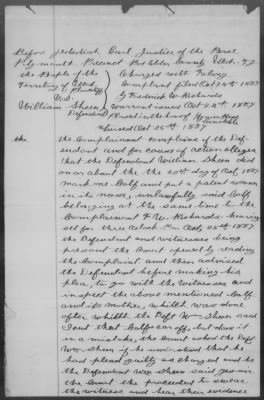 Before Jedediah Earl Justice of the Peace
Plymouth Precinct Box Elder County Utah Ty
the People of the Charged with Felony
Territory of Utah Complaint filed Oct 24th 1887
Plaintiff G Frederick W Richards
V.S. Warrant issued Oct 24th 1887
William Sheen
Defendant
Issued Oct 25th 1887
the the Complainant Complains of the Def-
endant and for cause of action alleges
that the Defendant William Sheen did
on or about the 20th day of Oct 1887
mark one Calf and put a patent weaner
in its nose, unlawfully said Calf
belonging at the same time to the
Complainant F. W. Richards. hearing
set for three Oclock Pm Oct 25th 1887
the Defendant and witnesses being
present the Court opened by reading
the Complaint and then advised
the Defendant before making his
plea, to go with the Witnesses and
inspect the above mentioned Calf
and its mother, which was done
after which the Deft Wm Sheen said
I cut that Calfs ear off, but done it
in a mistake, the Court asked the Deft
Wm Sheen if he understood that he
had plead guilty as charged and he
the Defendant Wm Sheen said yes sir
the Court the proceeded to swear
the witness and hear their evidence